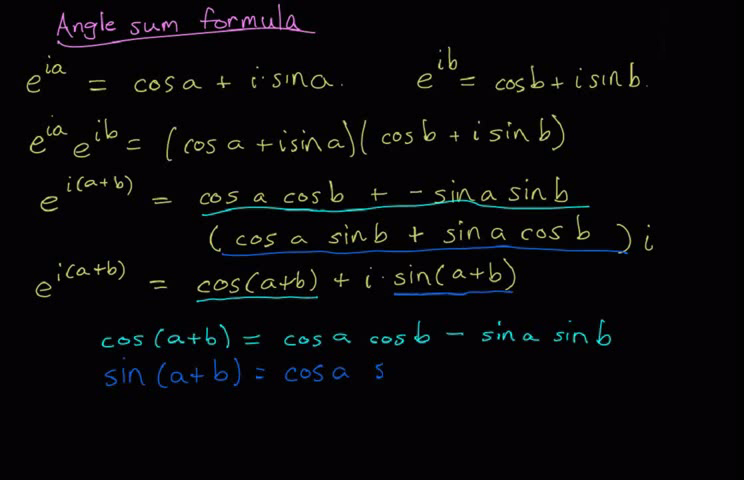 Angle sum formula
e^{ia} = cos a + i · sin a. e^{ib} = cos b + i sin b.
e^{ia} e^{ib} = (cos a + i sin a)(cos b + i sin b)
e^{i(a+b)} = cos a cos b + - sin a sin b
(cos a sin b + sin a cos b) i
e^{i(a+b)} = cos(a+b) + i · sin(a+b)
cos(a+b) = cos a cos b - sin a sin b
sin(a+b) = cos a s